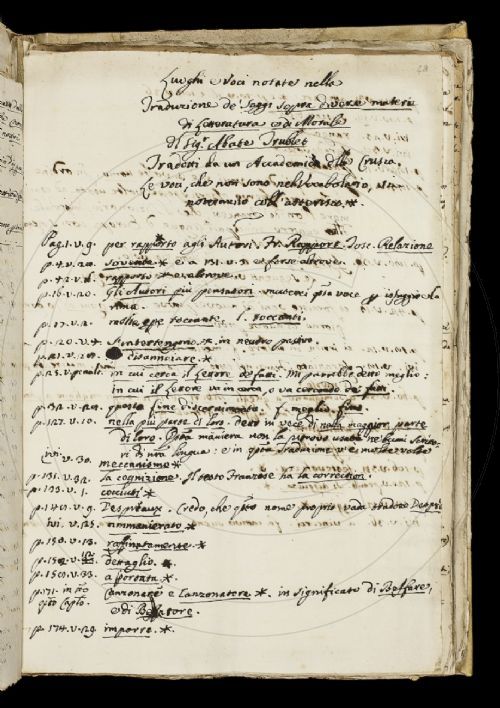 Luoghi e Voci notate nella
Traduzione de' Saggi sopra diverse materie
di Letteratura e di Morale
del Sig.r Abate Trublet
Tradotti da un Accademico della Crusca.
Le voci, che non sono nel Vocabolario, si
noteranno coll' asterisco.*
Pag. 1. v. 9. per rapporto agli Autori. Fr. Rapport. Tosc. Relazione
p. 4. v. 20. * e a 131. v. 3. e forse altrove.
rapporto * e altrove.
p. 16. v. 20. gli Autori più pensatori
rima.
p. 17. v. 2. toccante. l. toccanti.
p. 20. v. 4 * in neutro passivo.
*
in cui cerca il Lettore de' fatti. Mi parrebbe detto meglio:
in cui il Lettore va in cerca, o va cercando de' fatti
questo fine f. meglio, fino
p. 127. v. 10. nella più parte di loro. detto in voce di nella maggior parte
di loro. Questa maniera non la
lingua: e in questa Traduzione v'è molte volte
ivi v. 30. meccanismo *
p. 131. v. 32. la cognizione. Il testo Franzese ha la correction
p. 133. v. 1. *
p. 149. v. 9. Despréaux. Credo, che questo nome proprio vada tradotto
ivi. v. 25. ammanierato. *
p. 150. v. 13. raffinatamente. *
dettaglio. *
p. 159. v. 33. a portata. *
p. 171. in fine Canzonare e Canzonatore. *. in significato di Beffare,
e di Beffatore.
p. 174. v. 29. imporre. *.